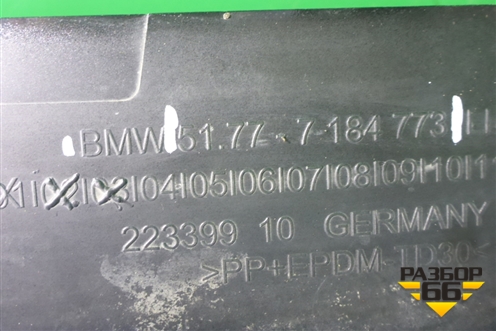 BMW 51.77 - 7-184 773
I04I05I06I07I08I09I10I1
223399 10 GERMANY
>PP+EPDM-TD30<
РАЗБОР
66